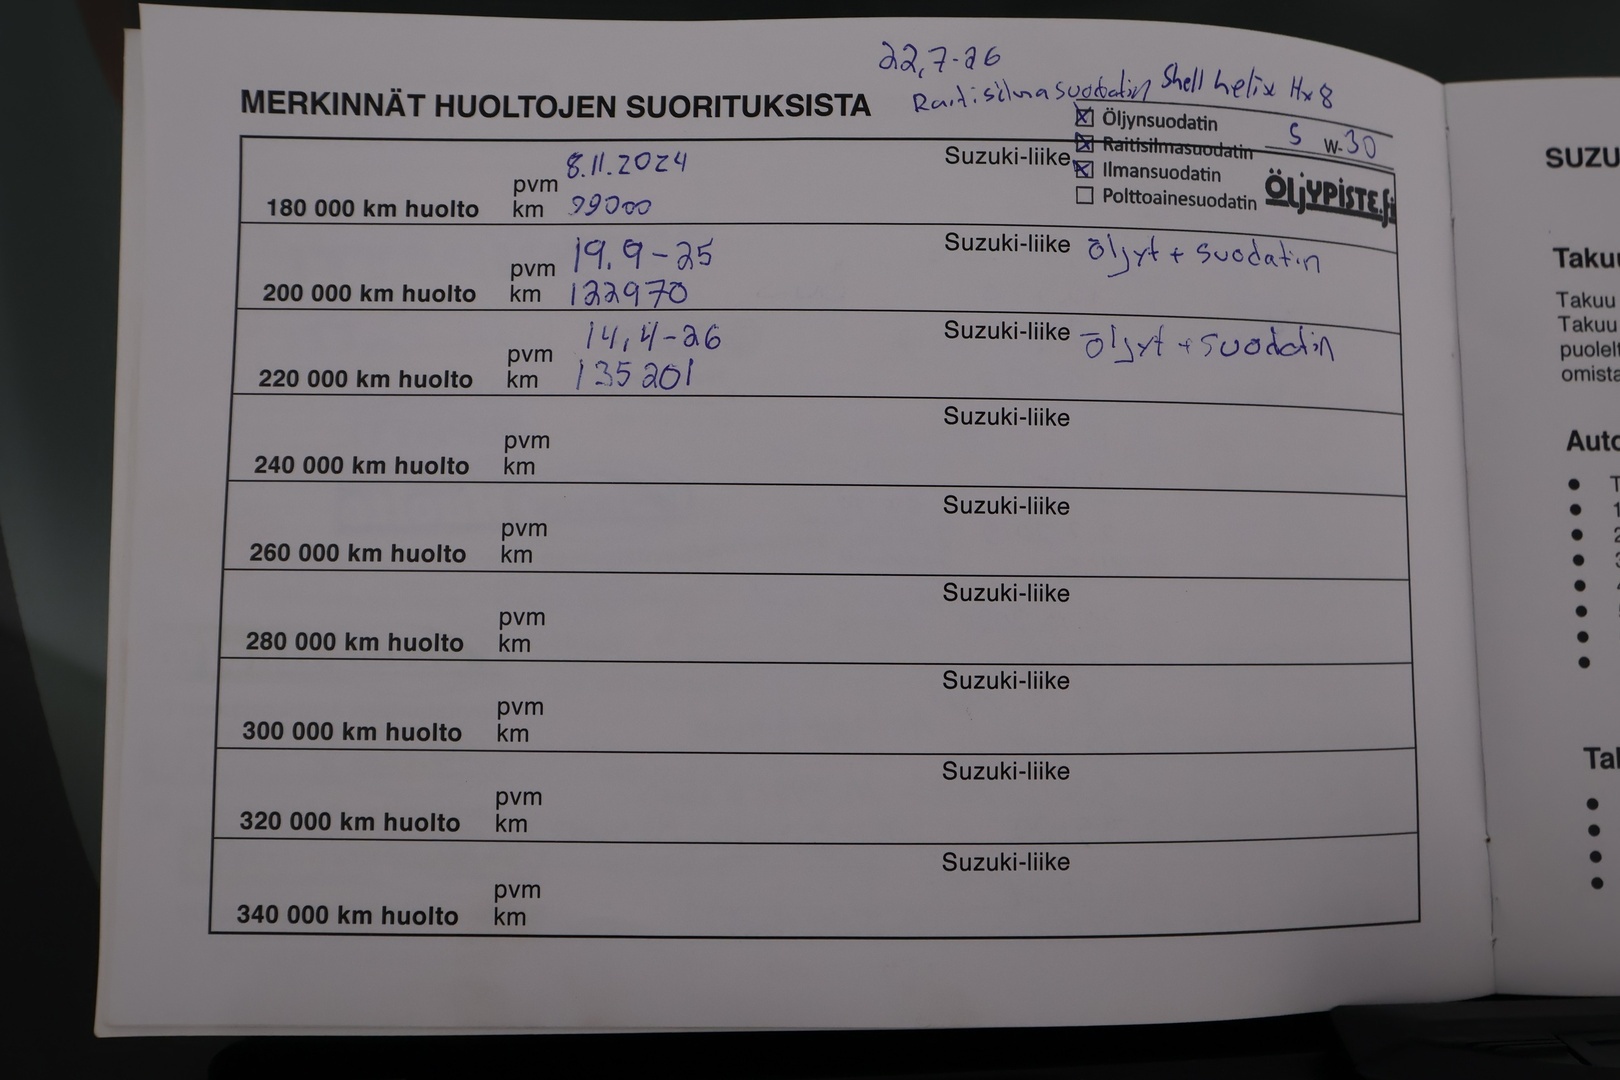 22,7-26
Raitisilmasuodatin Shell helix Hx8
MERKINNÄT HUOLTOJEN SUORITUKSISTA
180 000 km huolto
pvm 8.11.2024
km 99000
Suzuki-liike
Öljynsuodatin
Raitisilmasuodatin
Ilmansuodatin
Polttoainesuodatin
5 W-30
ÖLJYPISTE.fi
200 000 km huolto
pvm 19.9-25
km 122970
Suzuki-liike öljyt + suodatin
220 000 km huolto
pvm 14,4-26
km 135201
Suzuki-liike öljyt + suodatin
240 000 km huolto
pvm
km
Suzuki-liike
260 000 km huolto
pvm
km
Suzuki-liike
280 000 km huolto
pvm
km
Suzuki-liike
300 000 km huolto
pvm
km
Suzuki-liike
320 000 km huolto
pvm
km
Suzuki-liike
340 000 km huolto
pvm
km
Suzuki-liike
SUZU
Takuu
Takuu
Takuu
puolelt
omista
Auto